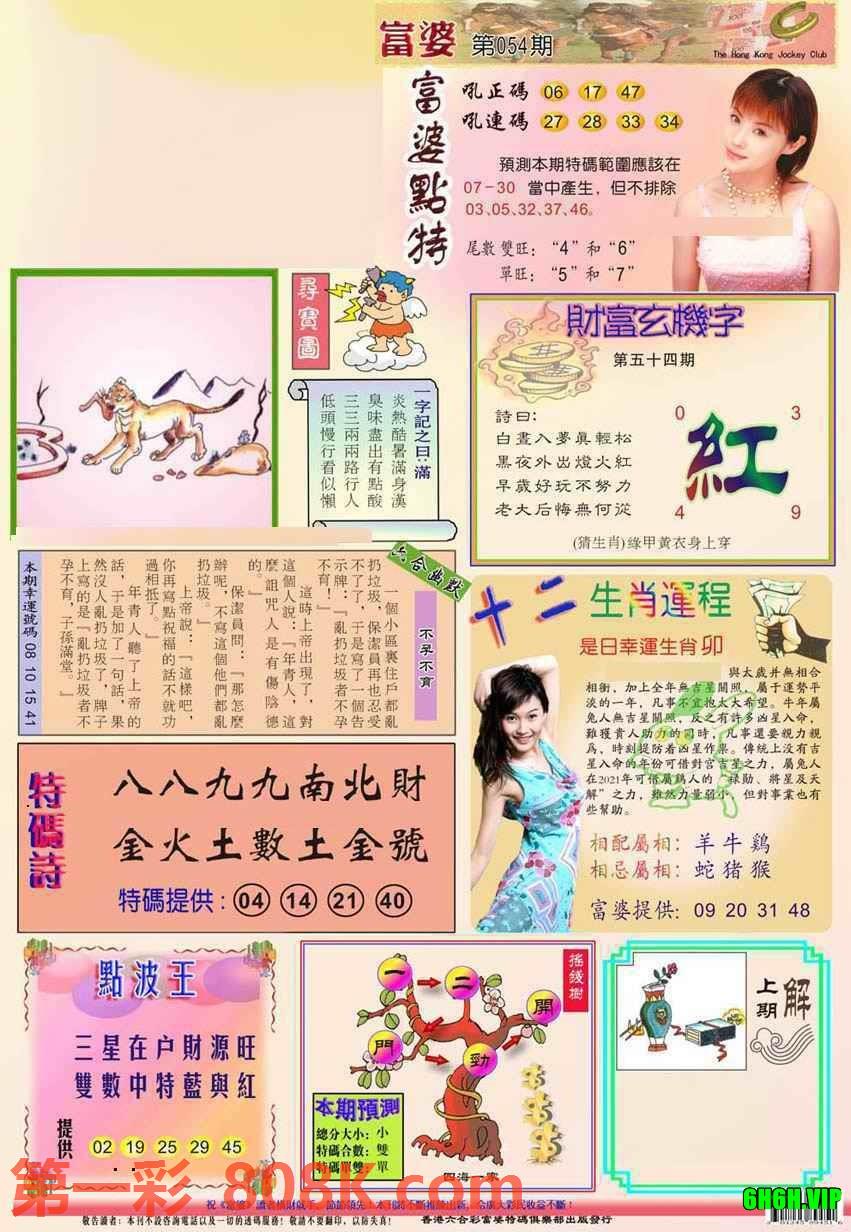 富婆 第054期
The Hong Kong Jockey Club
富婆點特
吼正碼 06 17 47
吼連碼 27 28 33 34
預測本期特碼範圍應該在
07-30 當中產生，但不排除
03、05、32、37、46。
尾數雙旺：“4”和“6”
單旺：“5”和“7”
尋寶圖
一字記之曰：滿
炎熱酷暑滿身漢
臭味盡出有點酸
三三兩兩路行人
低頭慢行看似懶
財富玄機字
第五十四期
詩曰：
白晝入夢眞輕松
黑夜外出燈火紅
早歲好玩不努力
老大后悔無何從
0 3
紅
4 9
(猜生肖)綠甲黃衣身上穿
六合幽默
不孕不育
一個小區裏住戶都亂
扔垃圾，保潔員再也忍受
不了了，于是寫了一個告
示牌：『亂扔垃圾者不孕
不育！』
這時上帝出現了，對
這個人說：『年青人，這
麼詛咒人是有傷陰德
的。』
保潔員問：『那怎麼
辦呢，不寫這個他們都亂
扔垃圾。』
上帝說：『這樣吧，
你再寫點祝福的話不就功
過相抵了。』
年青人聽了上帝的
話，于是加了一句話，果
然沒人亂扔垃圾了，牌子
上寫的是『亂扔垃圾者不
孕不育，子孫滿堂。』
本期幸運號碼 08 10 15 41
十二生肖運程
是日幸運生肖卯
與太歲并無相合
相衝，加上全年無吉星關照，屬于運勢平
淡的一年，凡事不宜抱太大希望。牛年屬
兔人無吉星關照，反之有許多凶星入命，
難獲貴人助力的同時，凡事還要親力親
爲，時刻提防着凶星作祟。傳統上没有吉
星入命的年份可借對宮吉星之力，屬兔人
在2021年可借屬鷄人的“禄勛、將星及天
解”之力，雖然力量弱小，但對事業也有
些幫助。
相配屬相：羊牛鷄
相忌屬相：蛇猪猴
富婆提供：09 20 31 48
特碼詩
八八九九南北財
金火土數土金號
特碼提供：04 14 21 40
點波王
三星在户財源旺
雙數中特藍與紅
提供 02 19 25 29 45
搖錢樹
一 二 開
門 勁
本期預測
總分大小：小
特碼合數：雙
特碼單雙：單
四海一家
上期 解
第一彩 808K.com
6H6H.VIP
敬告讀者：本刊不設咨詢電話以及一切的透碼服務！敬請不要翻印，以防失真！
香港六合彩富婆特碼俱樂部出版發行